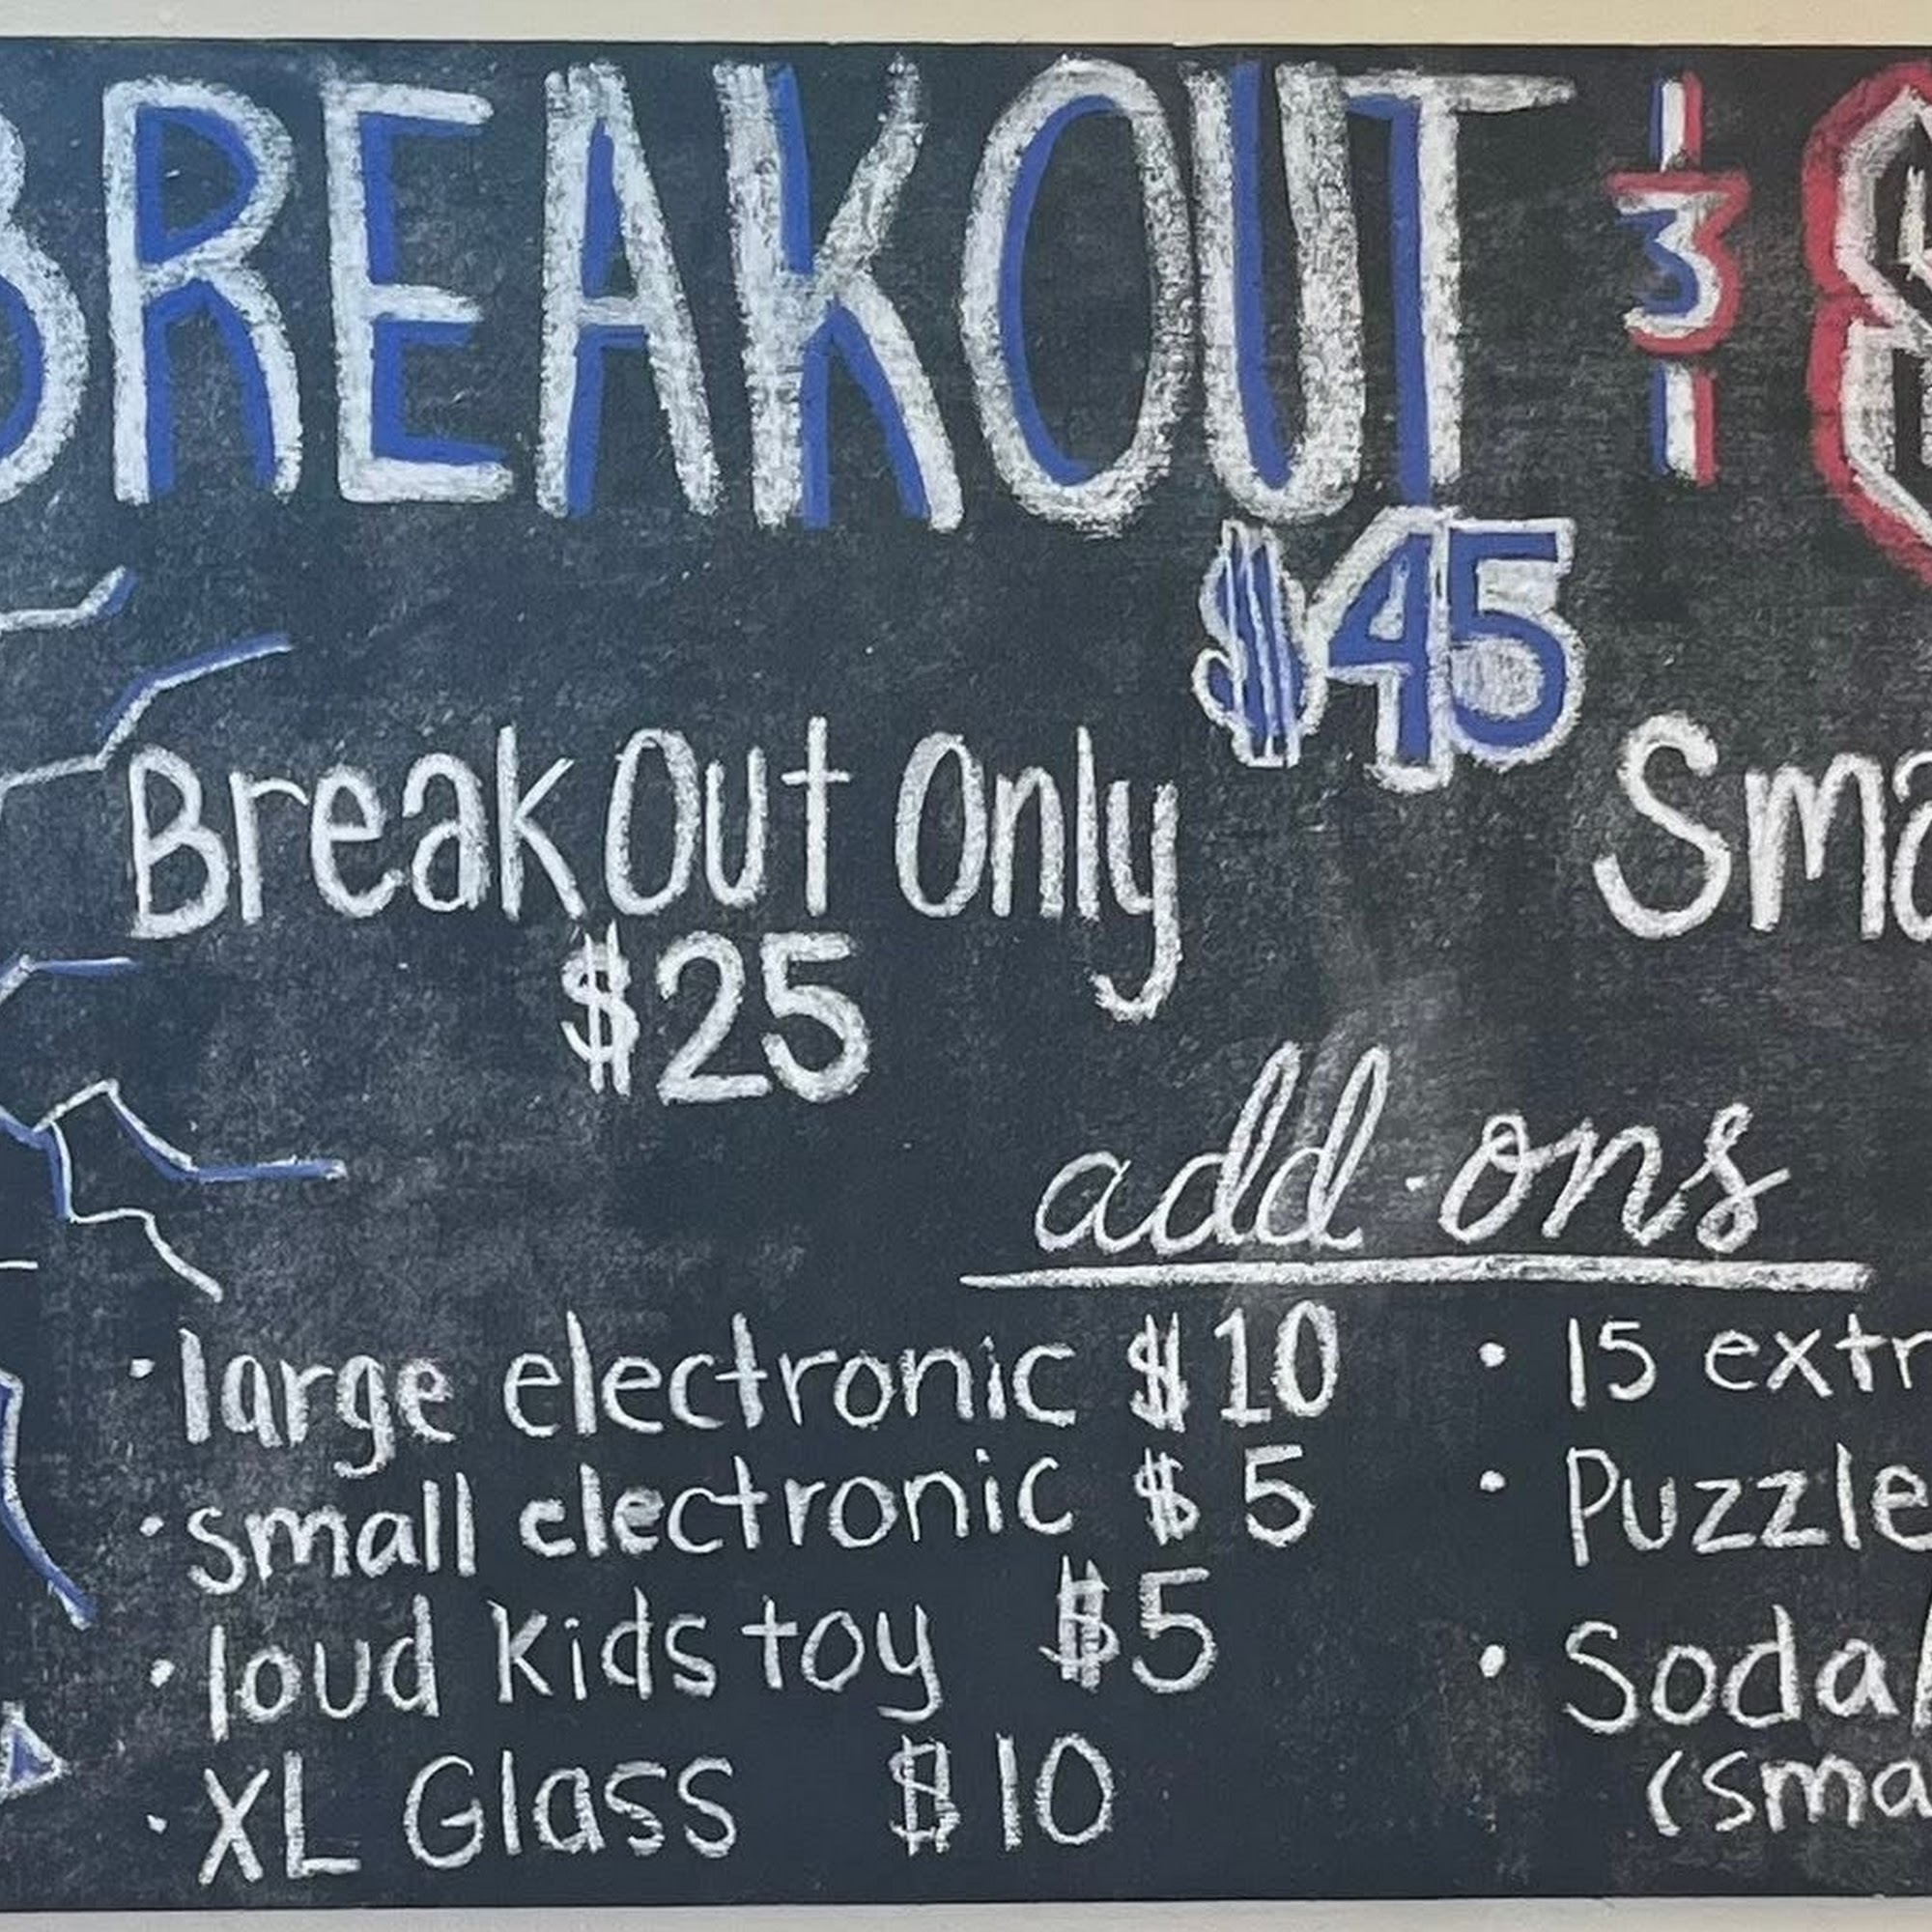 BREAKOUT &
$45
BreakOut Only
$25
Sma
add-ons
• large electronic $10
• small electronic $5
• loud kids toy $5
• XL Glass $10
• 15 extr
• Puzzle
• Soda/
(sma